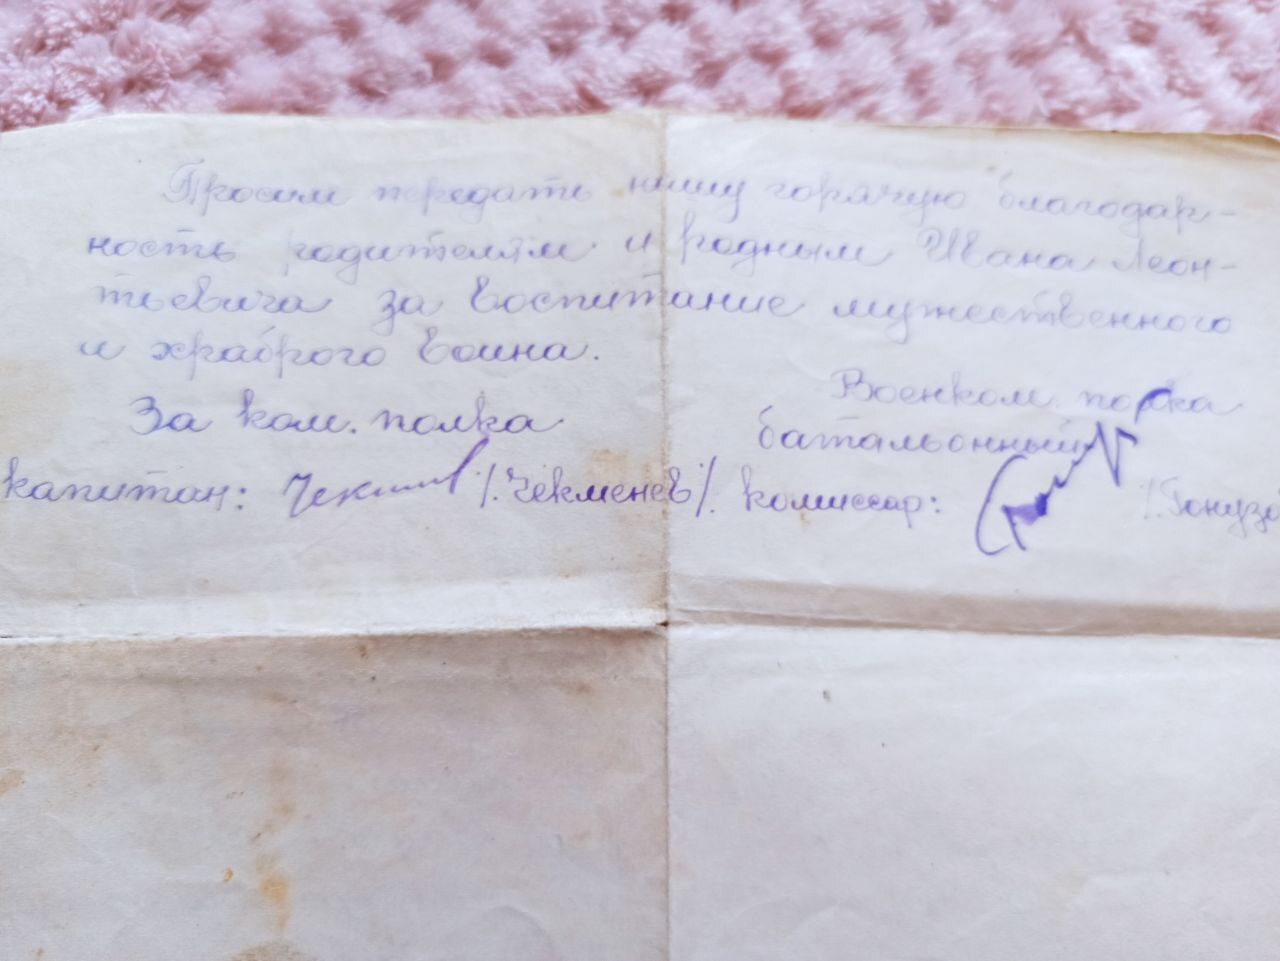 Просим передать нашу горячую благодар-
ность родителям и родным Ивана Леон-
тьевича за воспитание мужественного
и храброго воина.
За ком. полка
Военком. полка
батальонный
капитан: /.Чекменев/. комиссар: /.Гонузо